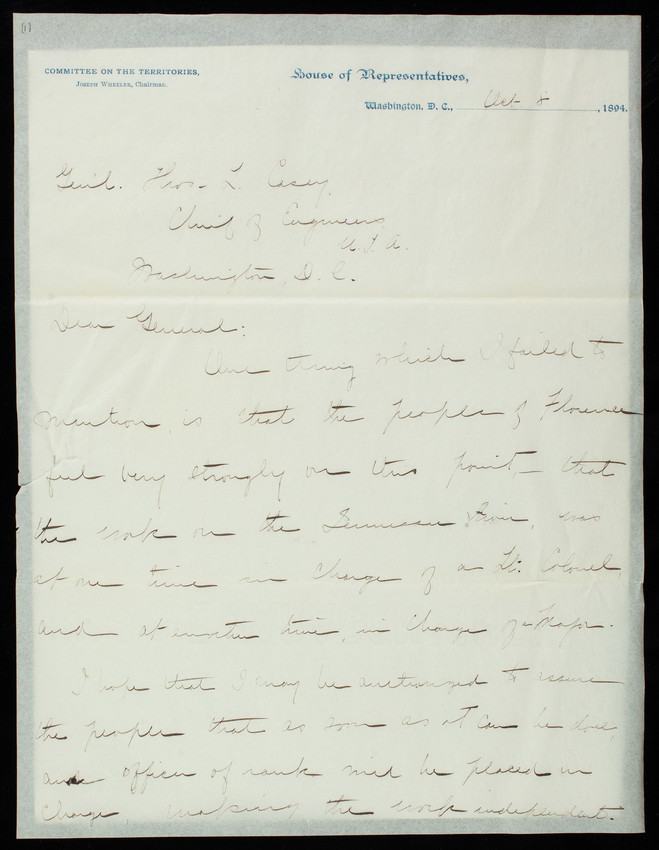 (1)
COMMITTEE ON THE TERRITORIES,
JOSEPH WHEELER, Chairman.
House of Representatives,
Washington, D. C., Oct 8, 1894.
Genl. Thos. L. Casey,
Chief of Engineers,
U.S.A.
Washington, D. C.
Dear General:
One thing which I failed to
mention, is that the people of Florence
feel very strongly on this point, – that
the work on the Tennessee River, was
at one time in charge of a Lt. Colonel,
and at another time, in charge of a Major.
I hope that I may be authorized to assure
the people that as soon as it can be done,
an officer of rank will be placed in
charge, making the work independent.